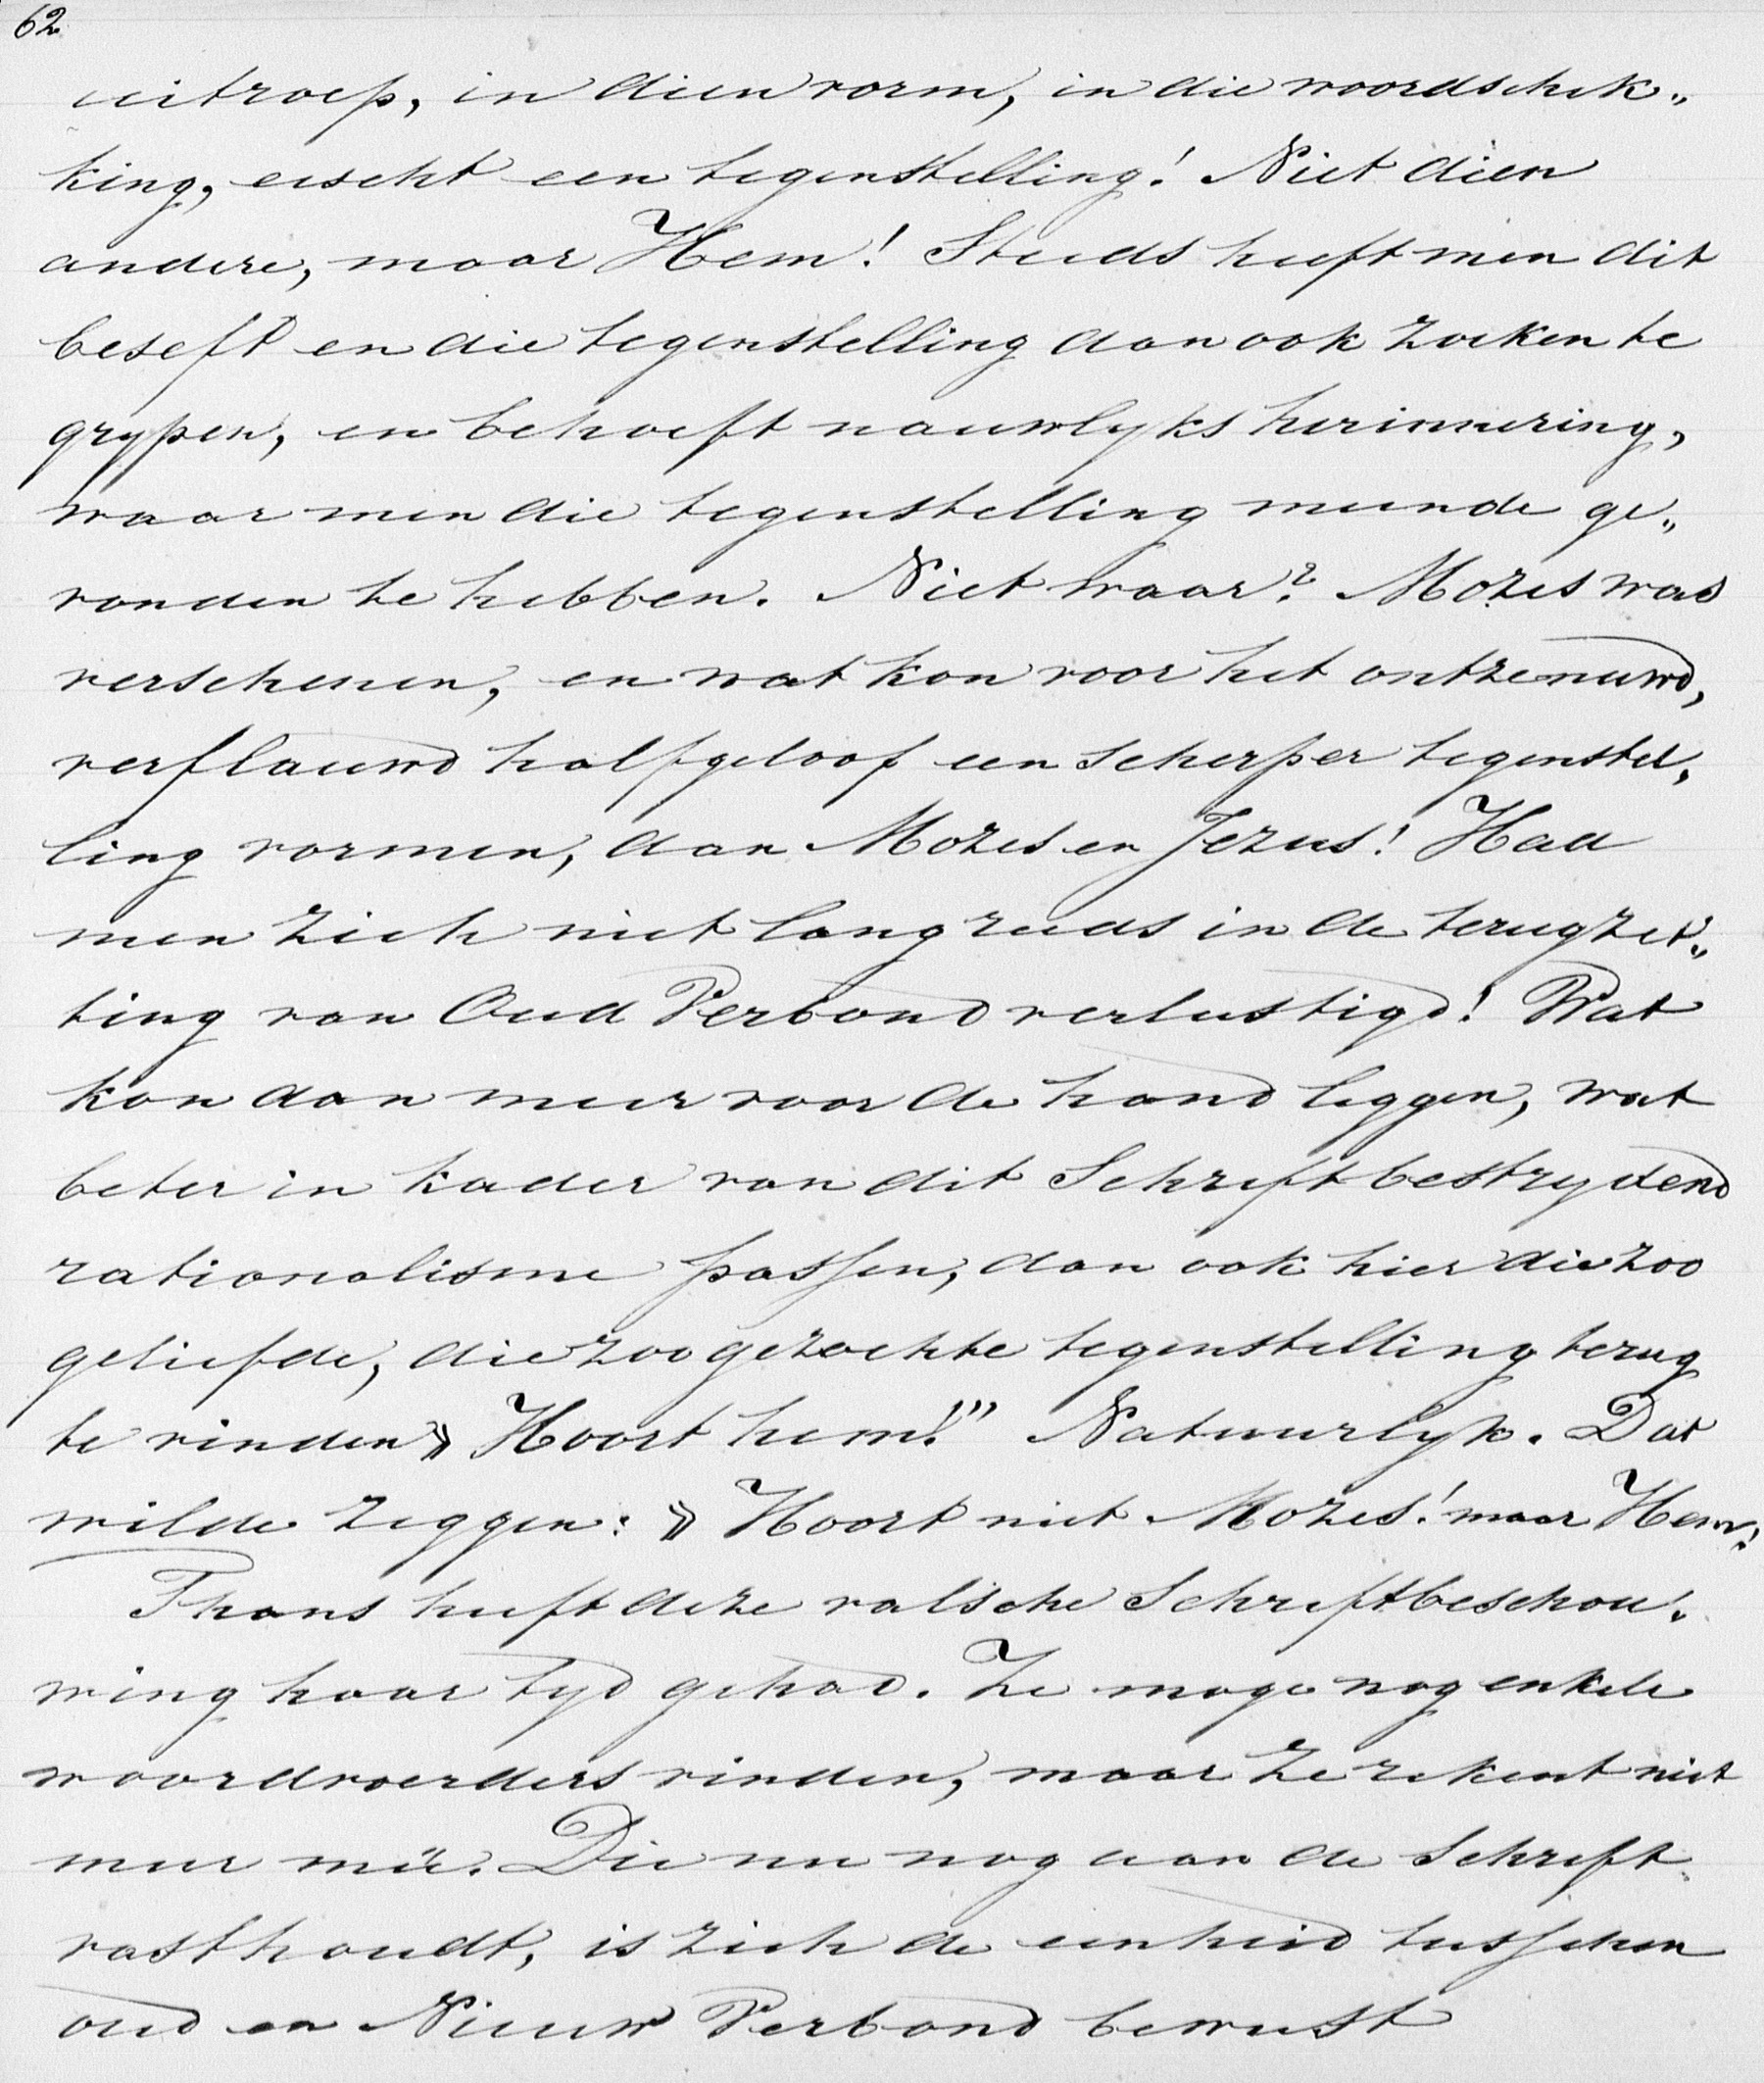 62
uitroep, in dien vorm, in die woordschik„
king, eischt een tegenstelling! Niet dien
andere, maar Hem! Steeds heeft men dit
beseft en die tegenstelling dan ook zoeken te
grypen, en behoeft nauwlyks herinnering,
waar men die tegenstelling meende ge„
vonden te hebben. Niet waar? Mozes was
verschenen, en wat kon voor het ontzenuwd,
verflauwd halfgeloof een scherper tegenstel„
ling vormen, dan Mozes en Jezus! Had
men zich niet lang reeds in de terugzet„
ting van Oud Verbond verlustigd! Wat
kon dan meer voor de hand leggen, wat
beter in kader van dit Schriftbestrydend
rationalisme passen, dan ook hier die zoo
geliefde, die zoo gezochte tegenstelling terug
te vinden » Hoort hem!" Natuurlyk. Dat
wilde zeggen: » Hoort niet Mozes! maar Hem!
Thans heeft deze valsche Schriftbeschou„
wing haar tyd gehad. Ze moge nog enkele
woordvoerders vinden, maar ze rekent niet
meer mêe. Die nu nog aan de Schrift
vasthoudt, is zich de eenheid tusschen
oud en Nieuw Verbond bewust